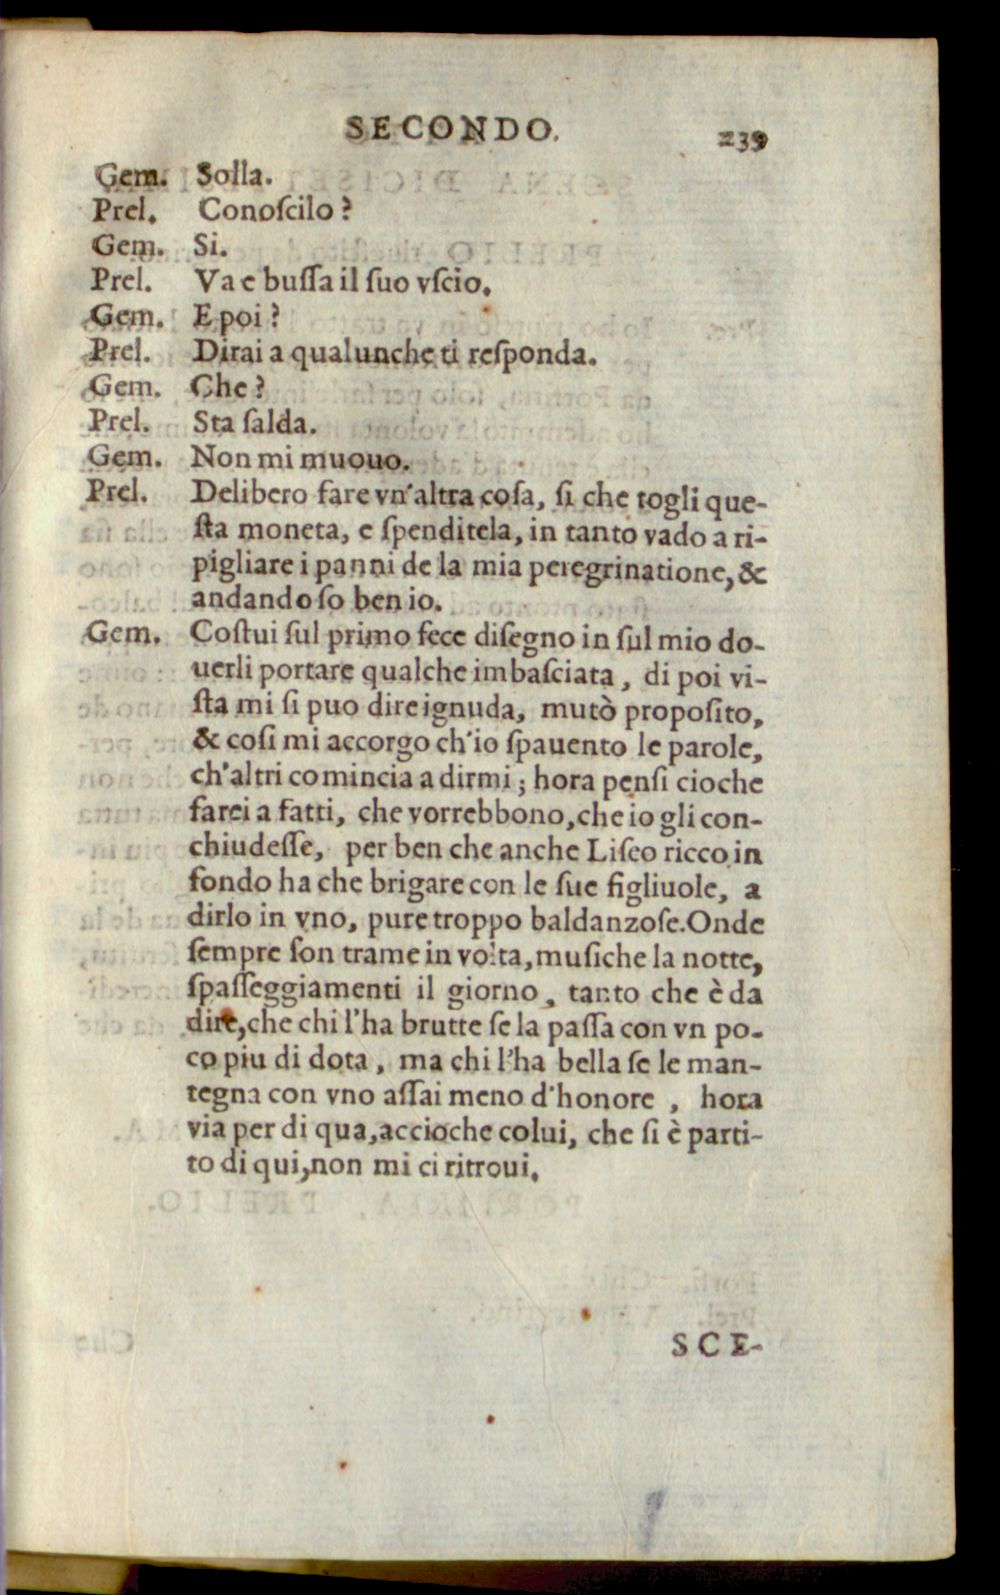 SECONDO. 239
Gem. Solla.
Prel. Conoſcilo?
Gem. Si.
Prel. Va e buſſa il ſuo vſcio.
Gem. E poi?
Prel. Dirai a qualunche ti reſponda.
Gem. Che?
Prel. Sta ſalda.
Gem. Non mi muouo.
Prel. Delibero fare vn'altra coſa, ſi che togli que-
ſta moneta, e ſpenditela, in tanto vado a ri-
pigliare i panni de la mia peregrinatione, &
andando ſo ben io.
Gem. Coſtui ſul primo fece diſegno in ſul mio do-
uerli portare qualche imbaſciata, di poi vi-
ſta mi ſi puo dire ignuda, mutò propoſito,
& coſi mi accorgo ch'io ſpauento le parole,
ch'altri comincia a dirmi; hora penſi cioche
farei a fatti, che vorrebbono, che io gli con-
chiudeſſe, per ben che anche Liſeo ricco in
fondo ha che brigare con le ſue figliuole, a
dirlo in vno, pure troppo baldanzoſe. Onde
ſempre ſon trame in volta, muſiche la notte,
ſpaſſeggiamenti il giorno, tanto che è da
dire, che chi l'ha brutte ſe la paſſa con vn po-
co piu di dota, ma chi l'ha bella ſe le man-
tegna con vno aſſai meno d'honore, hora
via per di qua, accioche colui, che ſi è parti-
to di qui, non mi ci ritroui.
SCE-